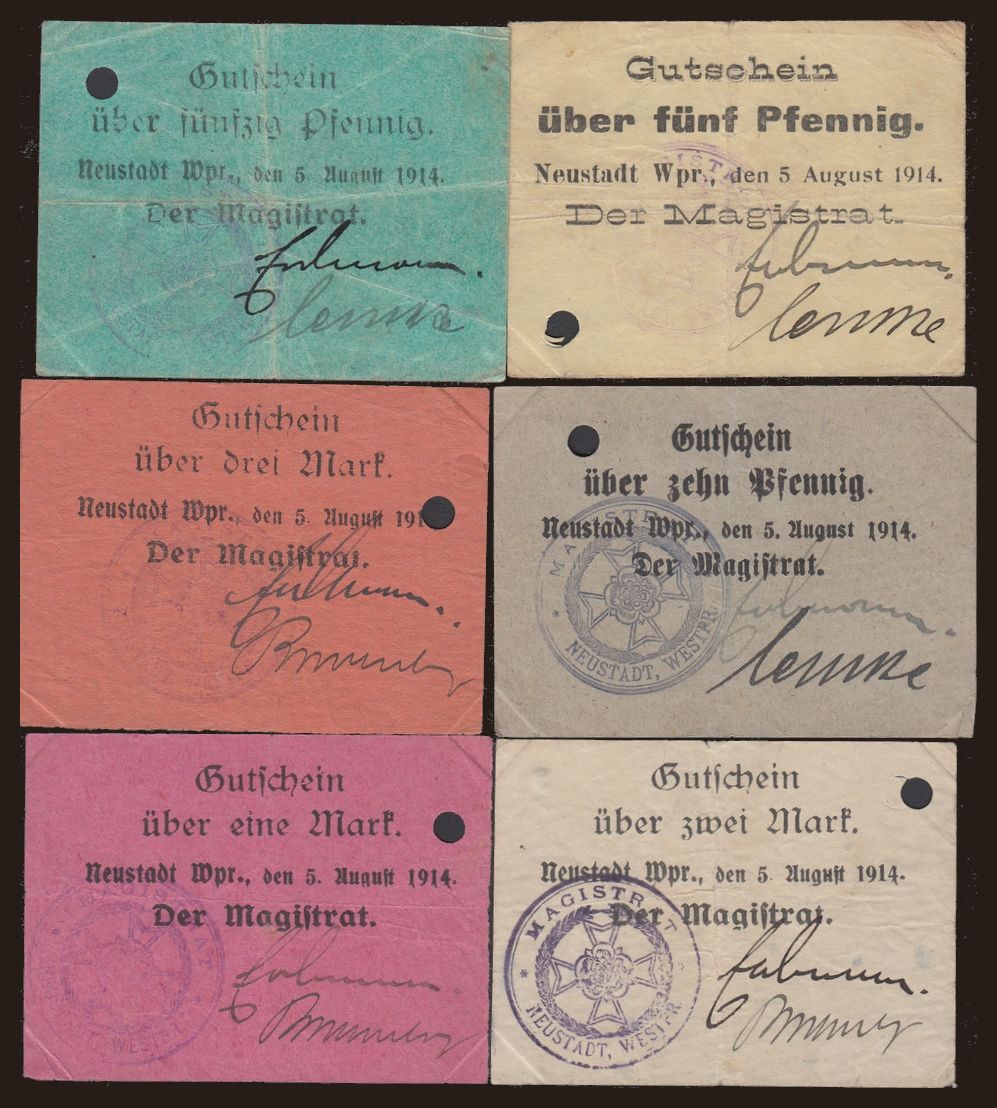 Gutschein
über fünfzig Pfennig.
Neustadt Wpr., den 5. August 1914.
Der Magistrat.
Gutschein
über fünf Pfennig.
Neustadt Wpr., den 5 August 1914.
Der Magistrat.
Lemke
Gutschein
über drei Mark.
Neustadt Wpr., den 5. August 191
Der Magistrat.
Gutschein
über zehn Pfennig.
Neustadt Wpr., den 5. August 1914.
Der Magistrat.
MAGISTRAT
* NEUSTADT, WESTPR. *
Lemke
Gutschein
über eine Mark.
Neustadt Wpr., den 5. August 1914.
Der Magistrat.
Gutschein
über zwei Mark.
Neustadt Wpr., den 5. August 1914.
Der Magistrat.
MAGISTRAT
* NEUSTADT, WESTPR. *